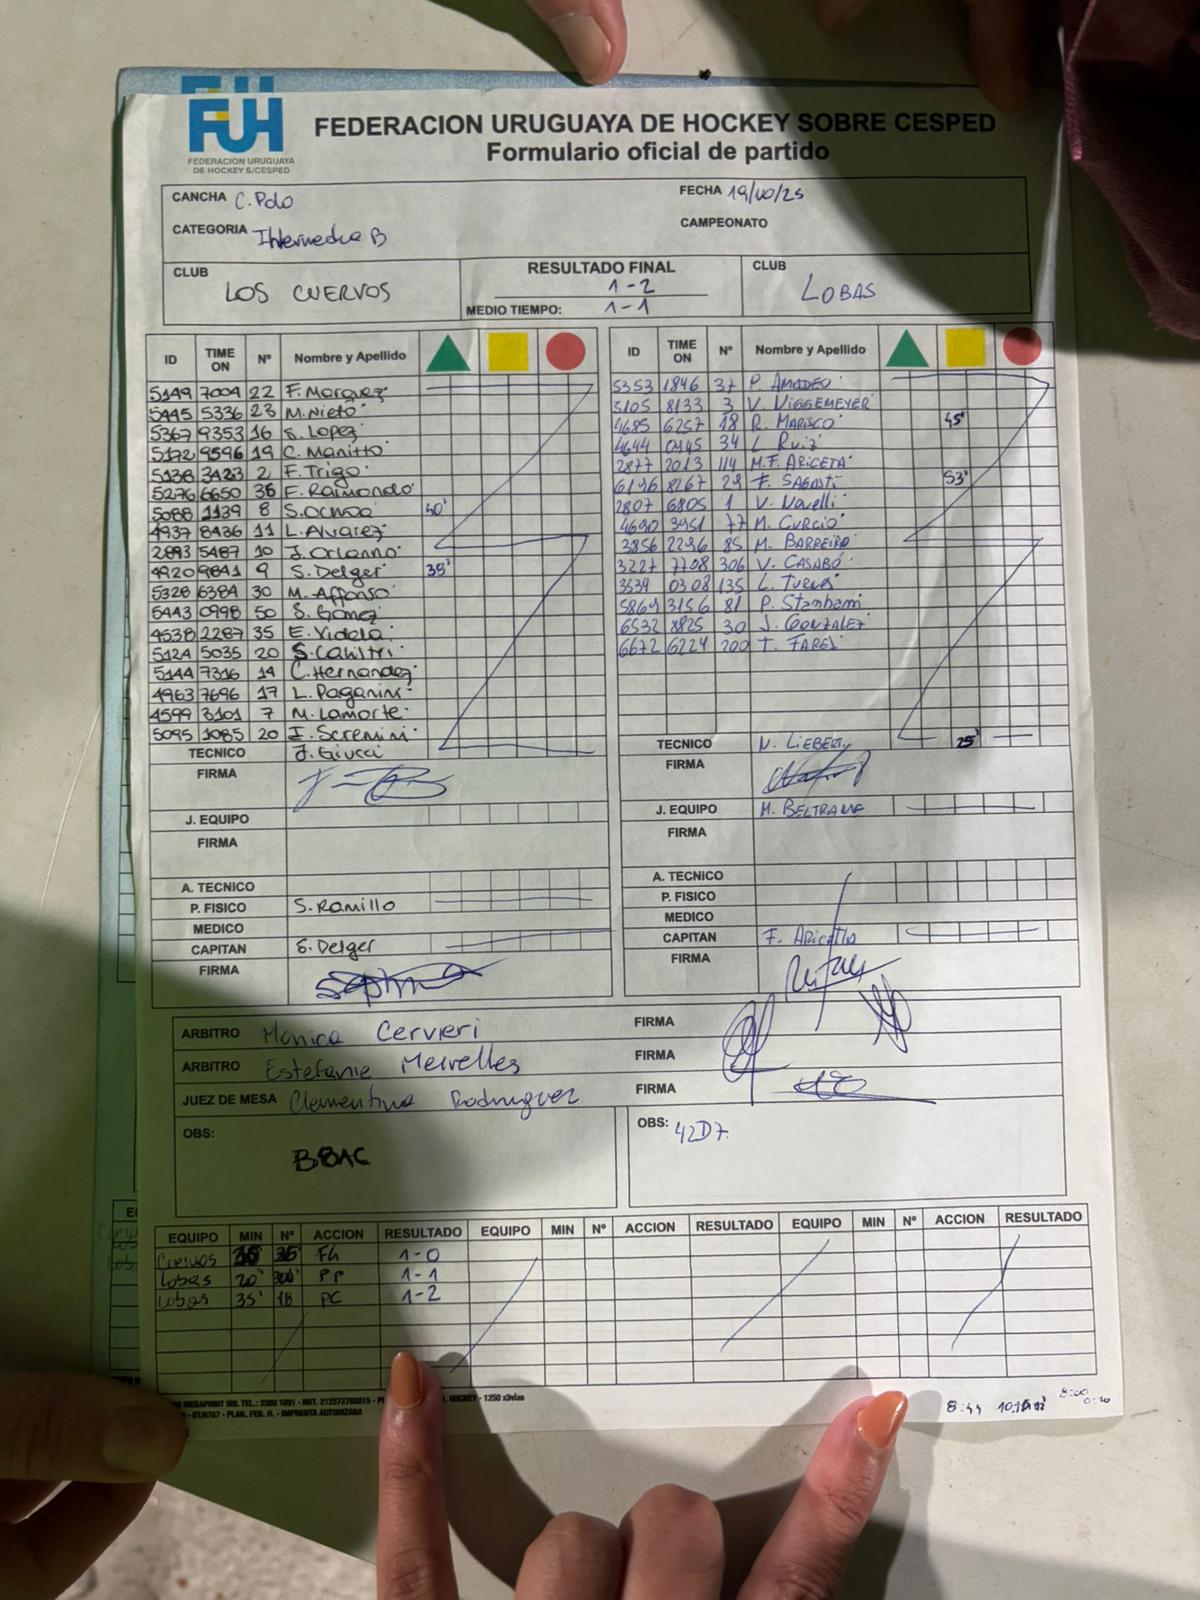 FUH
FEDERACION URUGUAYA
DE HOCKEY S/CESPED
FEDERACION URUGUAYA DE HOCKEY SOBRE CESPED
Formulario oficial de partido
CANCHA C. Polo FECHA 19/10/25
CATEGORIA Intermedia B CAMPEONATO
CLUB LOS CUERVOS RESULTADO FINAL 1-2 CLUB LOBAS
MEDIO TIEMPO: 1-1
ID TIME ON Nº Nombre y Apellido
5149 7004 22 F. Marquez
5445 5336 23 M. Nieto
5367 9353 16 S. Lopez
5172 9596 19 C. Manitto
5138 3423 2 F. Trigo
5276 6650 36 F. Raimondo
5088 1139 8 S. Ochoa 40'
4937 8436 11 L. Alvarez
2893 5487 10 J. Orlanno
4920 9841 9 S. Delger 38'
5328 6384 30 M. Affonso
5443 0998 50 S. Gomez
4538 2287 35 E. Videla
5124 5035 20
5144 7316 14 C. Hernandez
4963 7696 17 L. Paganini
4599 3101 7 M. Lamorte
5095 1085 20 I. Scremini
TECNICO J. Giucci
FIRMA
J. EQUIPO
FIRMA
A. TECNICO
P. FISICO S. Ramillo
MEDICO
CAPITAN S. Delger
FIRMA
ID TIME ON Nº Nombre y Apellido
5353 1846 37 P. AMADEO
3105 8133 3 V. VIGGEMEYER
4685 6257 18 R. MARISCO 45'
4644 0445 34 L Ruiz
2877 2013 114 M.F. ARICETA
6196 8267 29 F. 53'
2807 6805 1 V. Novelli
4690 3951 77 M. CURCIO
3856 2296 85 M. BARREIRO
3227 7708 306 V. CASABÓ
3534 0308 135 L.
5869 3156 81 P.
6532 8825 30 J. GONZALEZ
6672 6224 200 T.
TECNICO N. LIEBERT 25'
FIRMA
J. EQUIPO M. BELTRAME
FIRMA
A. TECNICO
P. FISICO
MEDICO
CAPITAN F.
FIRMA
ARBITRO Monica Cervieri FIRMA
ARBITRO Estefanie Meirelles FIRMA
JUEZ DE MESA Clementina Rodriguez FIRMA
OBS: BBAC OBS: 42D7.
EQUIPO MIN Nº ACCION RESULTADO EQUIPO MIN Nº ACCION RESULTADO EQUIPO MIN Nº ACCION RESULTADO
Cuervos FG 1-0
Lobas 20' PP 1-1
Lobas 35' 18 PC 1-2
MEGAPRINT SRL TEL.: 2300 1091 - RUT. 212572780015 HOCKEY - 1250 x3vias
PLAN. FED. H. - IMPRENTA AUTORIZADA
8:44
8:00